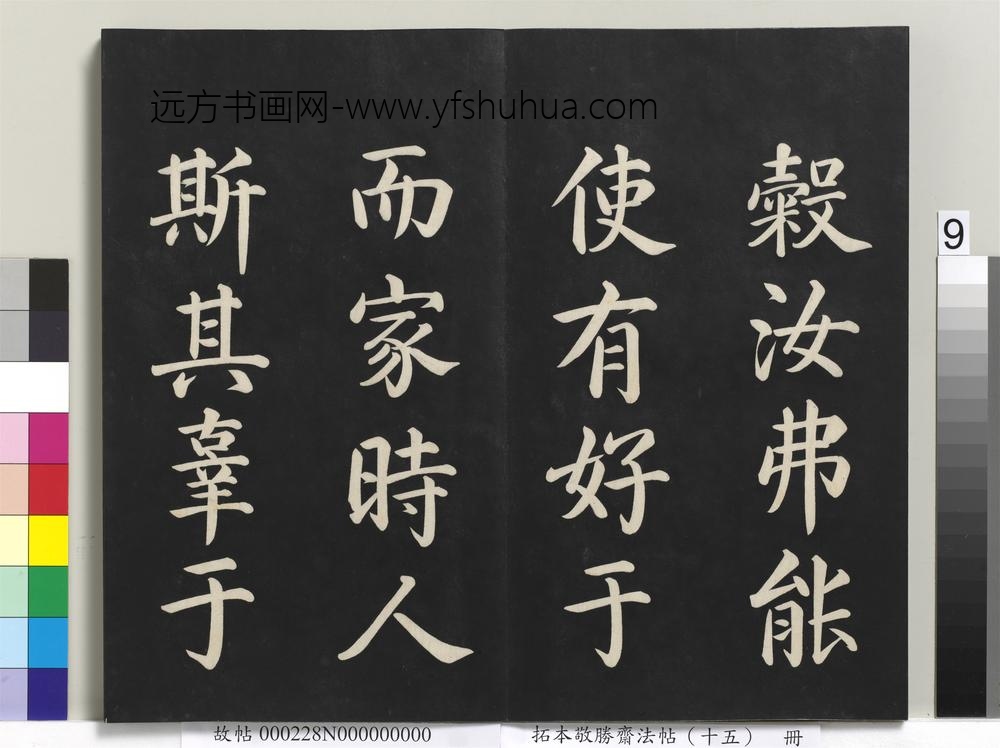 远方书画网-www.yfshuhua.com
穀汝弗能
使有好于
而家時人
斯其辜于
9
故帖 000228N000000000
拓本敬勝齋法帖（十五） 冊